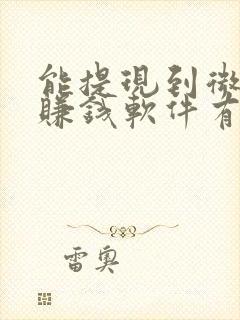 能提現到微
賺錢軟件有
雷奧